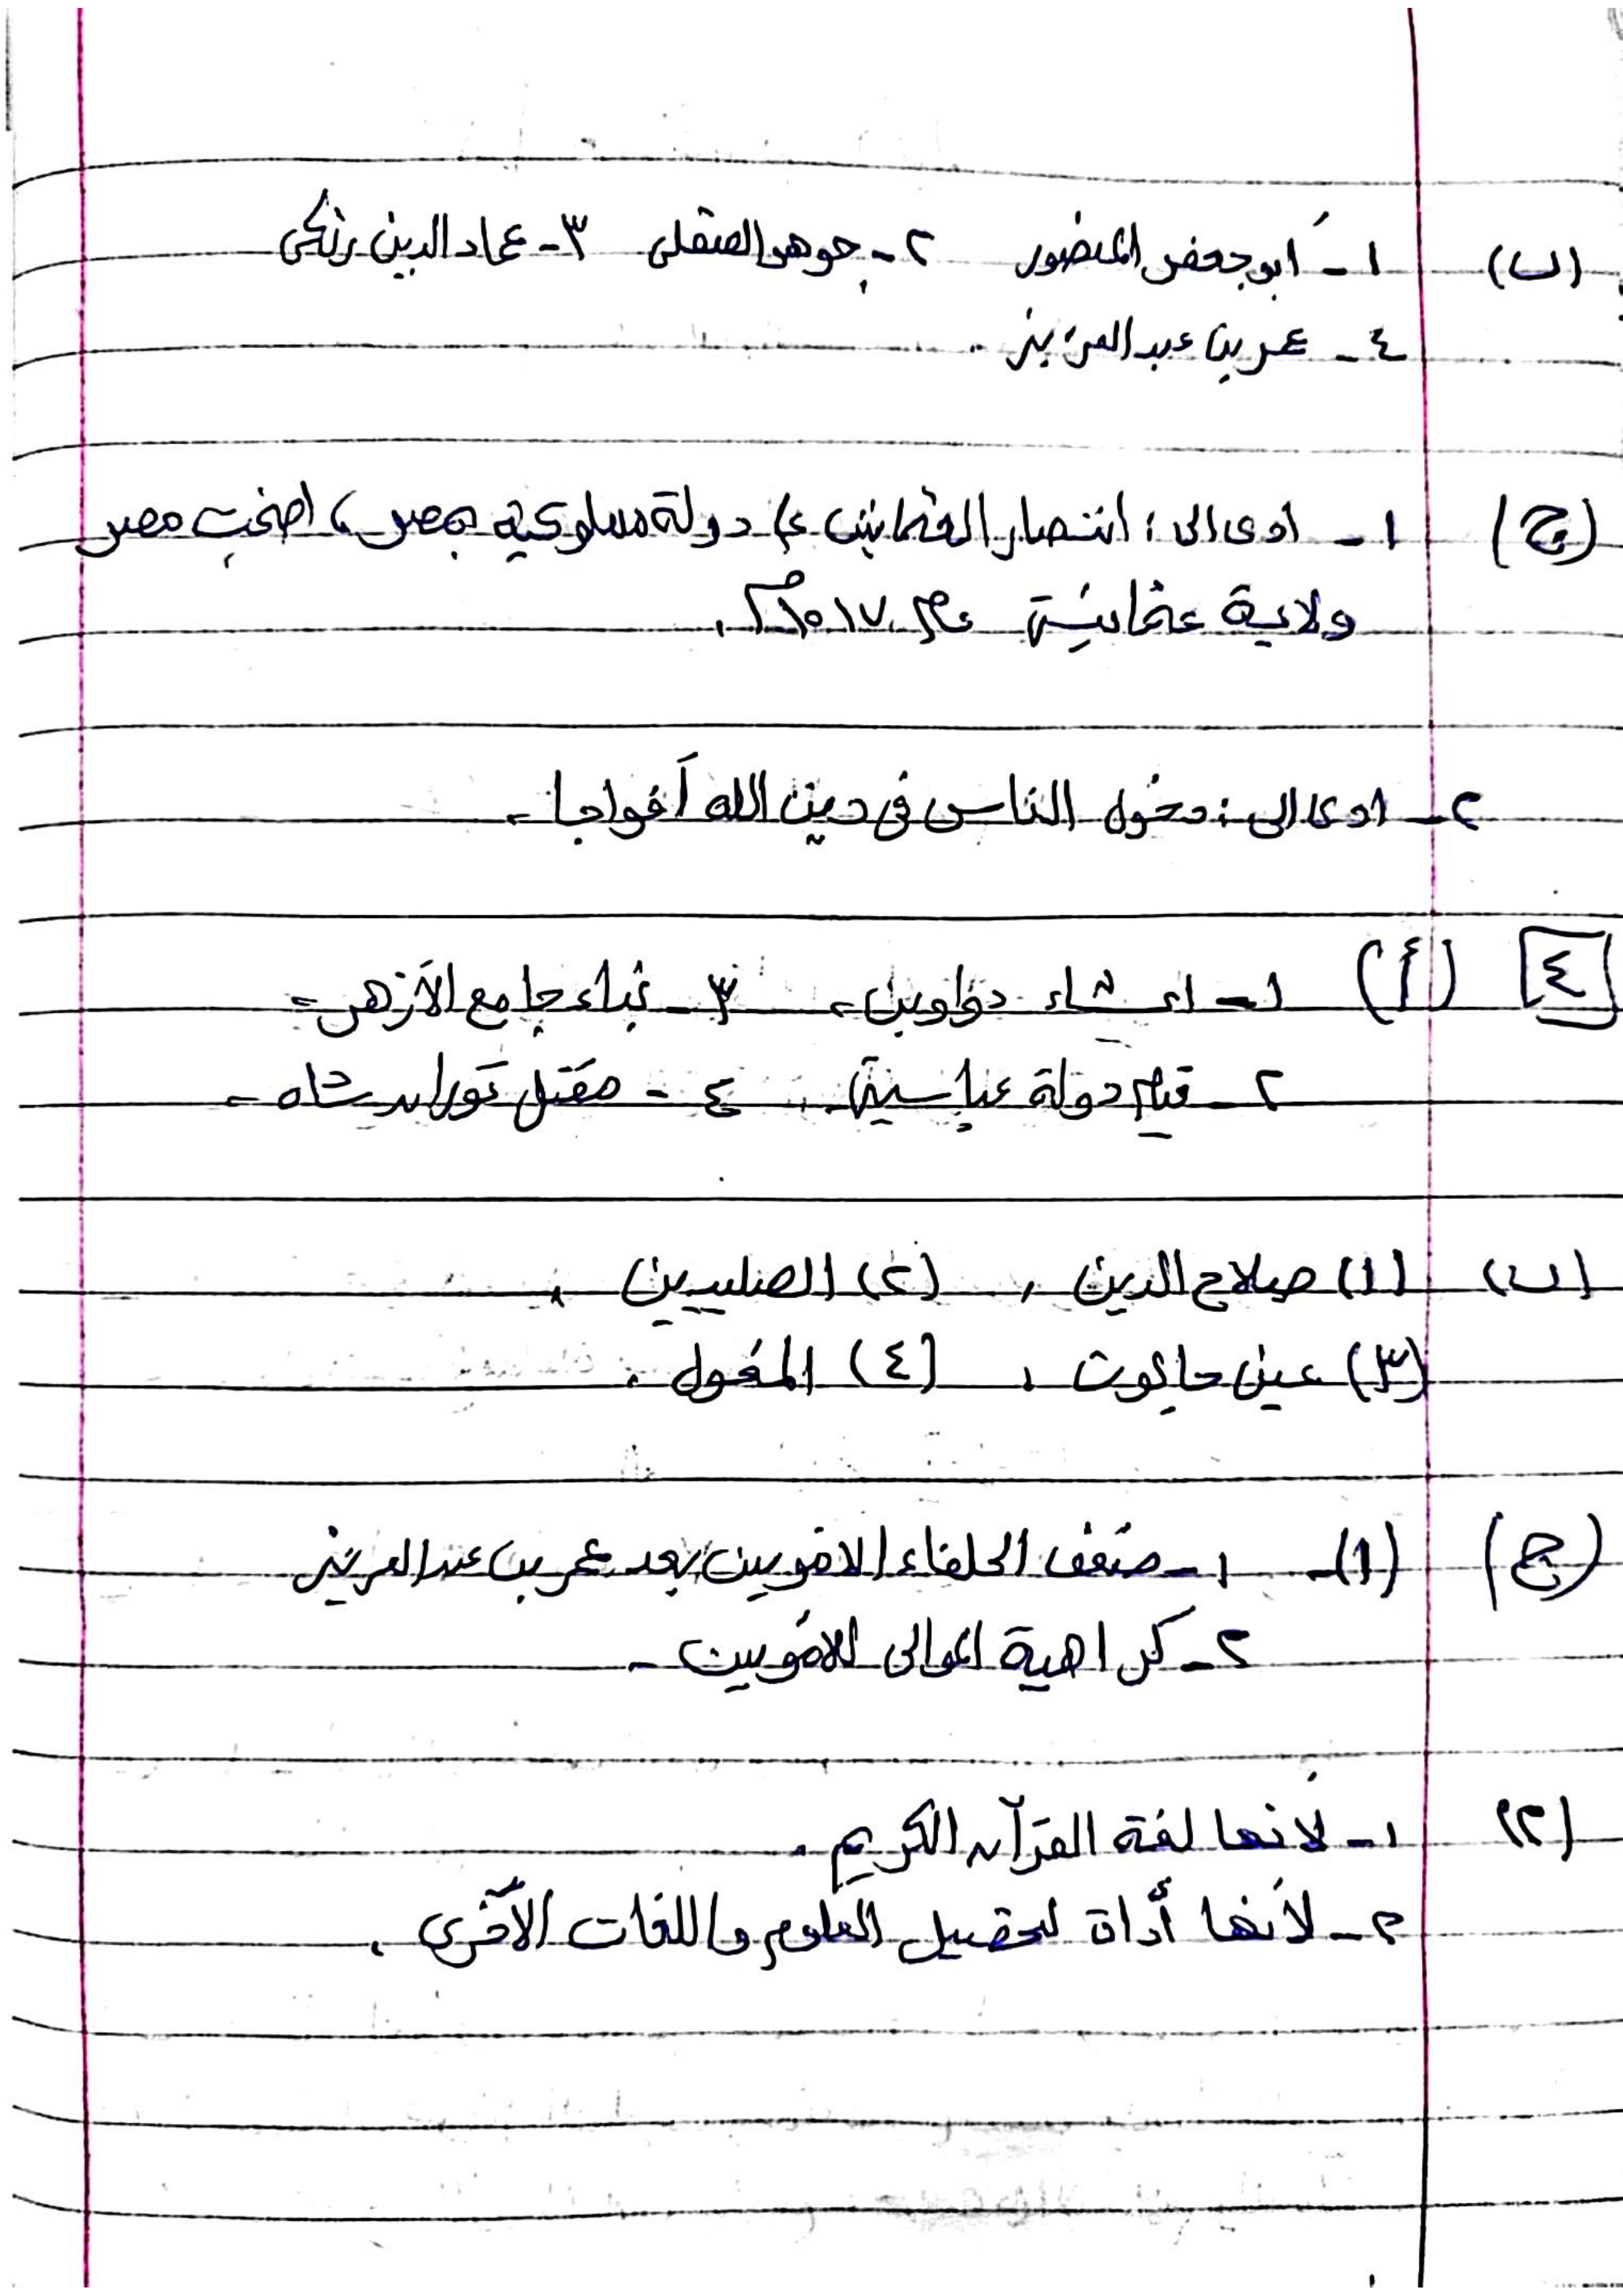 (ب) ١ - أبو جعفر المنصور ٢ - جوهر الصقلى ٣ - عماد الدين زنكى
٤ - عمر بن عبد العزيز .
(ج) ١ - ادى الى : انتصار العثمانين على دولة مملوكيه بمصر ، اصبحت مصر
ولاية عثمانية عام ١٥١٧م .
٢ - ادى الى : دخول الناس فى دين الله أفواجا .
٤ (أ) ١ - انشاء دواوين . ٣ - بناء جامع الأزهر .
٢ - قيام دولة عباسية . ٤ - مقتل توران شاه .
(ب) (١) صلاح الدين . (٢) الصليبين .
(٣) عين جالوت . (٤) المغول .
(ج) (١) - ١ - ضعف الخلفاء الامويين بعد عمر بن عبد العزيز
٢ - كراهية الموالى للامويين .
(٢) ١ - لأنها لغة القرآن الكريم .
٢ - لأنها أداة لتحصيل العلوم واللغات الأخرى .